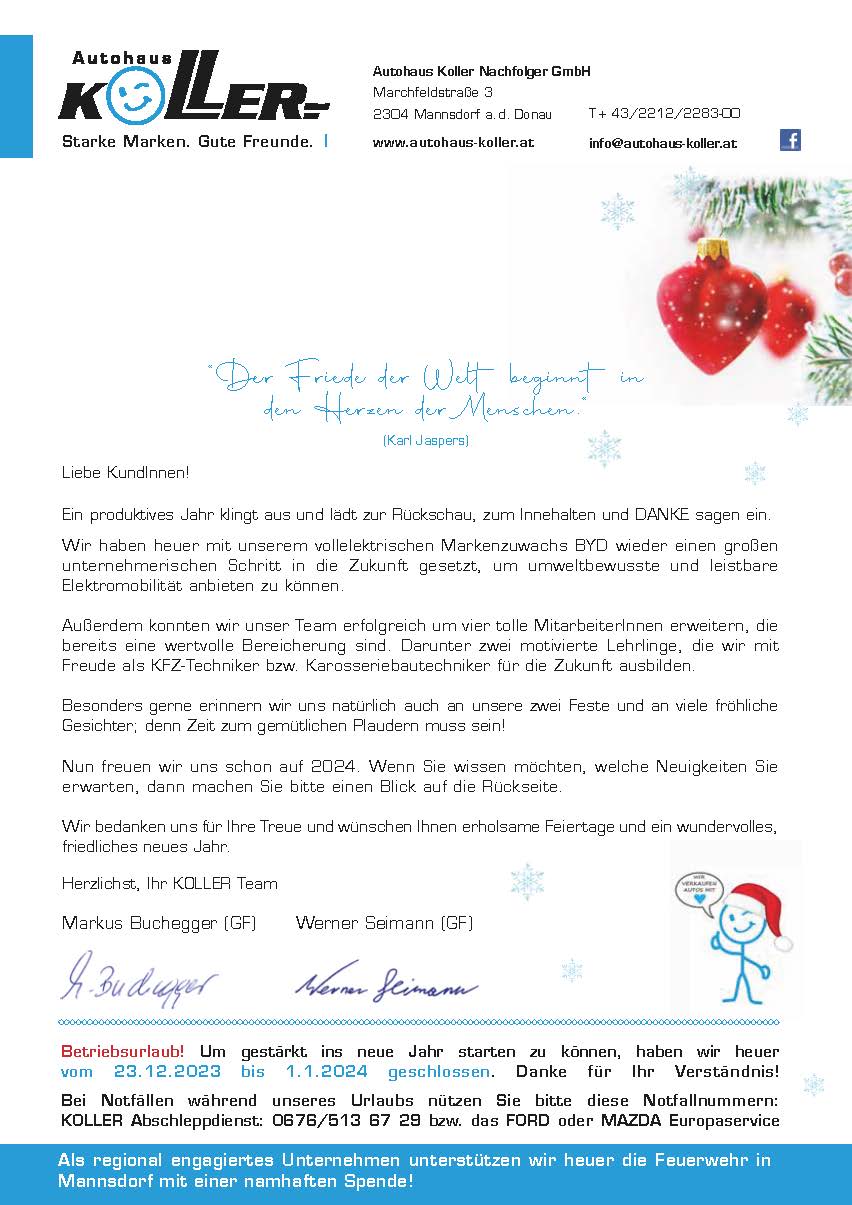 Autohaus
KOLLER
Starke Marken. Gute Freunde. |
Autohaus Koller Nachfolger GmbH
Marchfeldstraße 3
2304 Mannsdorf a. d. Donau T + 43/2212/2283-00
www.autohaus-koller.at info@autohaus-koller.at f
“Der Friede der Welt beginnt in
den Herzen der Menschen.“
(Karl Jaspers)
Liebe KundInnen!
Ein produktives Jahr klingt aus und lädt zur Rückschau, zum Innehalten und DANKE sagen ein.
Wir haben heuer mit unserem vollelektrischen Markenzuwachs BYD wieder einen großen
unternehmerischen Schritt in die Zukunft gesetzt, um umweltbewusste und leistbare
Elektromobilität anbieten zu können.
Außerdem konnten wir unser Team erfolgreich um vier tolle MitarbeiterInnen erweitern, die
bereits eine wertvolle Bereicherung sind. Darunter zwei motivierte Lehrlinge, die wir mit
Freude als KFZ-Techniker bzw. Karosseriebautechniker für die Zukunft ausbilden.
Besonders gerne erinnern wir uns natürlich auch an unsere zwei Feste und an viele fröhliche
Gesichter; denn Zeit zum gemütlichen Plaudern muss sein!
Nun freuen wir uns schon auf 2024. Wenn Sie wissen möchten, welche Neuigkeiten Sie
erwarten, dann machen Sie bitte einen Blick auf die Rückseite.
Wir bedanken uns für Ihre Treue und wünschen Ihnen erholsame Feiertage und ein wundervolles,
friedliches neues Jahr.
Herzlichst, Ihr KOLLER Team
WIR
VERKAUFEN
AUTOS MIT
Markus Buchegger (GF) Werner Seimann (GF)
M. Buchegger Werner Seimann
Betriebsurlaub! Um gestärkt ins neue Jahr starten zu können, haben wir heuer
vom 23.12.2023 bis 1.1.2024 geschlossen. Danke für Ihr Verständnis!
Bei Notfällen während unseres Urlaubs nützen Sie bitte diese Notfallnummern:
KOLLER Abschleppdienst: 0676/513 67 29 bzw. das FORD oder MAZDA Europaservice
Als regional engagiertes Unternehmen unterstützen wir heuer die Feuerwehr in
Mannsdorf mit einer namhaften Spende!